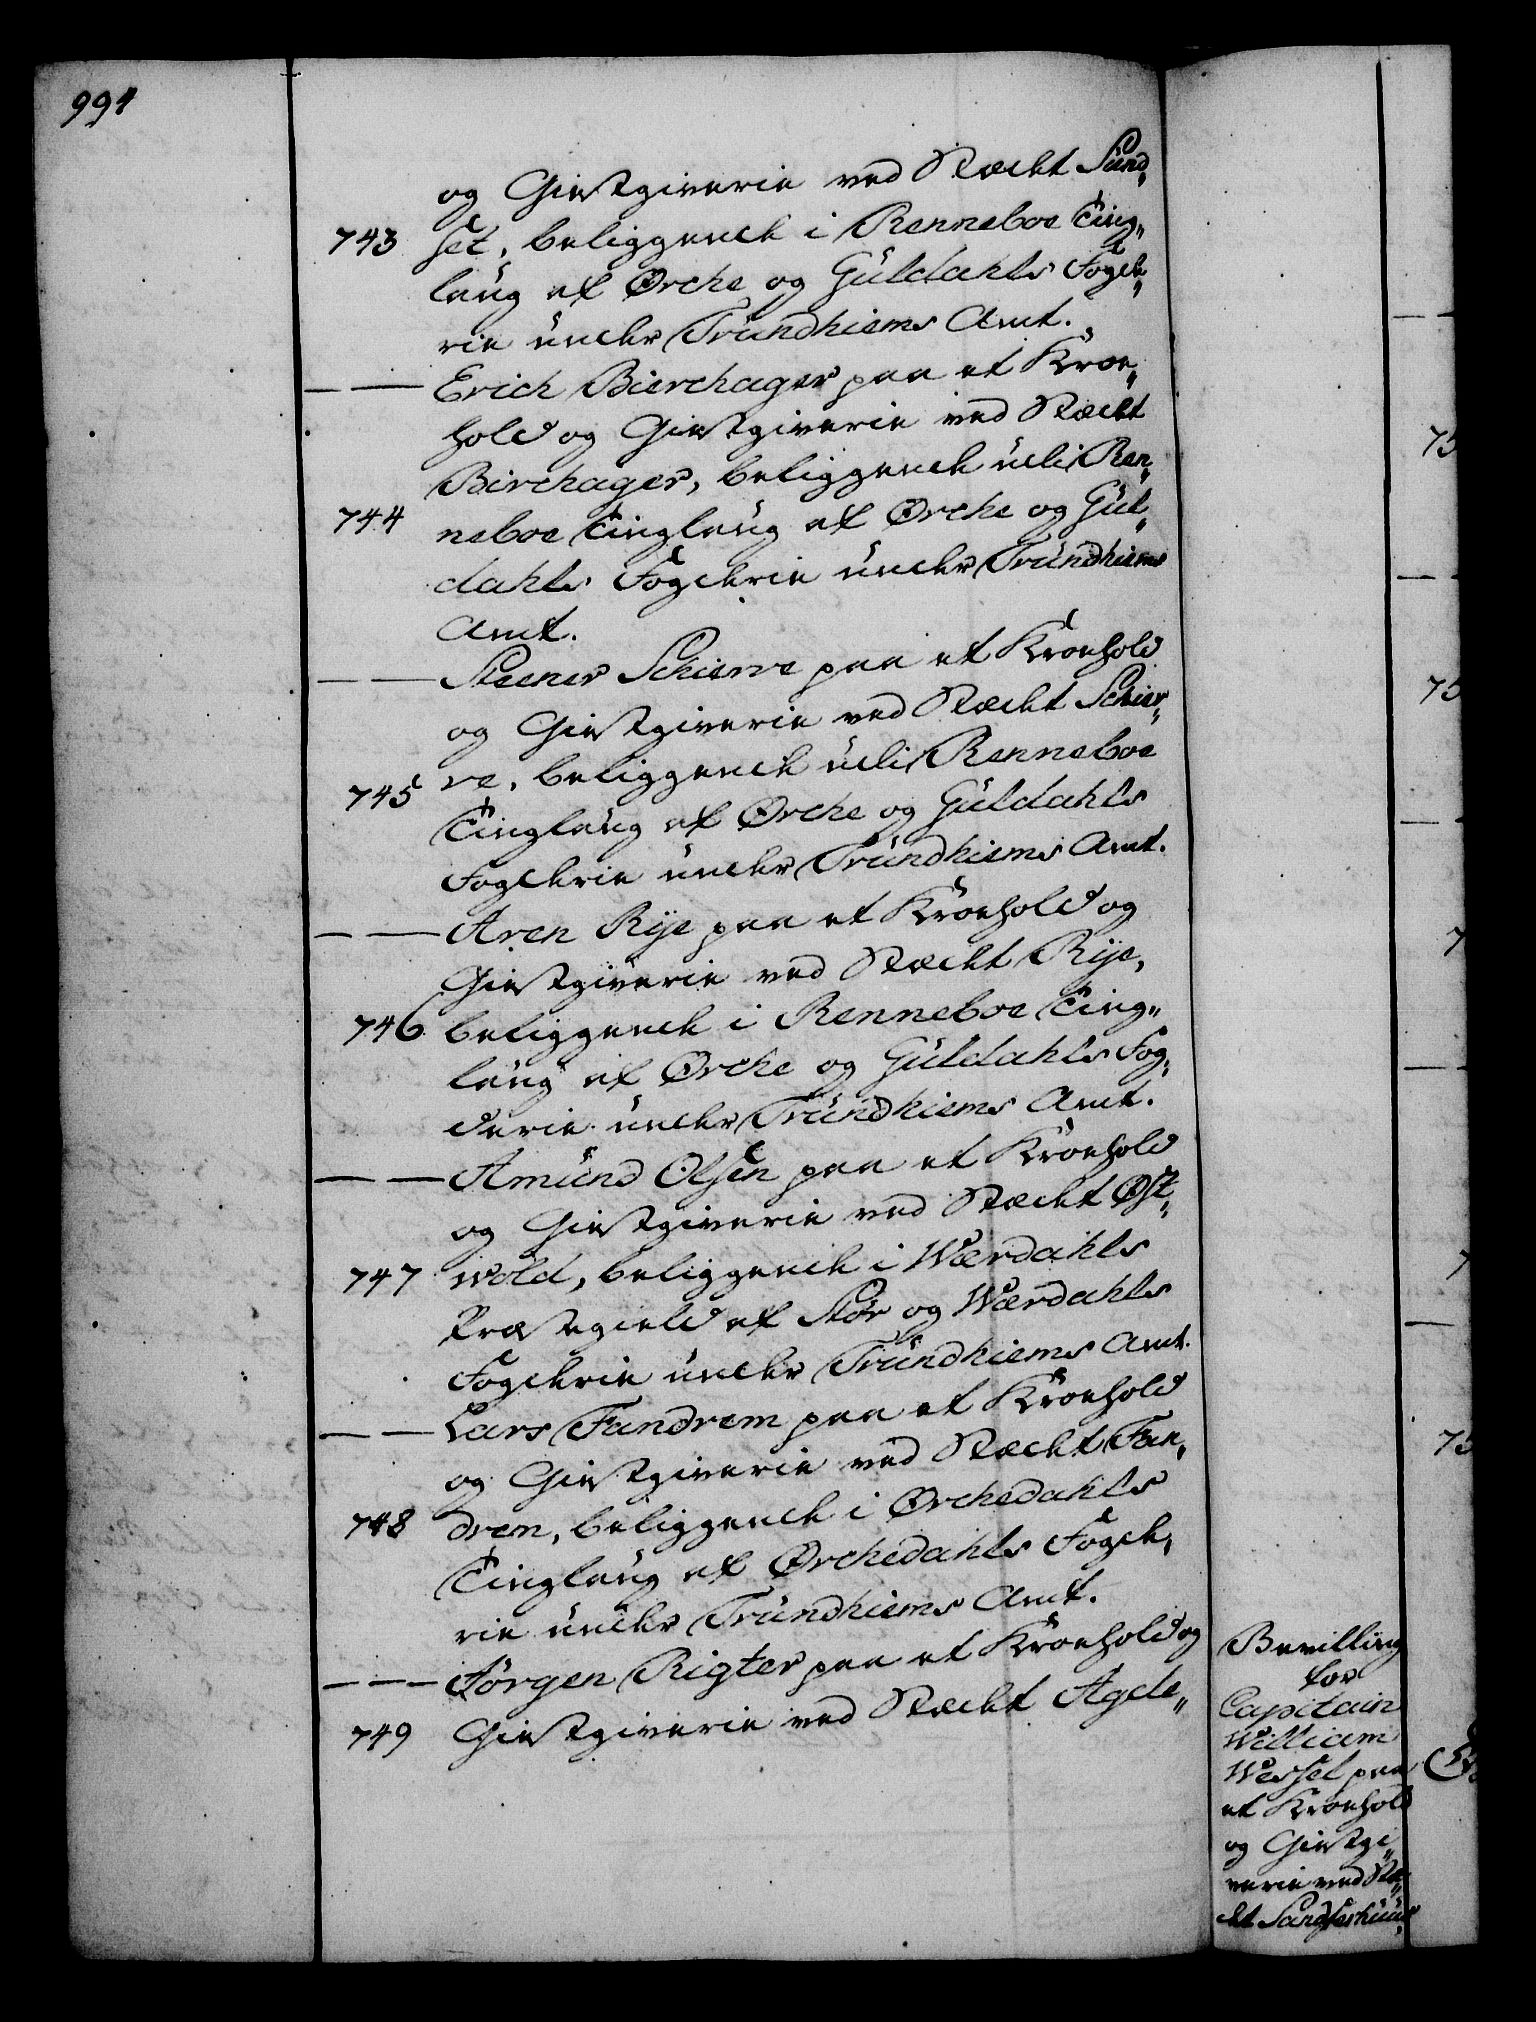 991
og Giestgiverie ved Stædet Sund„
743 set, beliggende i Renneboe Ting„
laug af Ørche og Guldahls Fogde„
rie under Trundhiems Amt.
— — Erich Bierchager paa et Kroe„
hold og Giestgiverie ved Stædet
Birchager, beliggende udi Ren„
744 neboe Tinglaug af Ørche og Gul„
dahls Fogderie under Trundhiems
Amt.
— — Steener Schierve paa et Kroehold
og Giestgiverie ved Stædet Schier„
745 ve, beliggende udi Renneboe
Tinglaug af Ørche og Guldahls
Fogderie under Trundhiems Amt.
— — Aren Rÿe paa et Kroehold og
Giestgiverie ved Stædet Rÿe,
746 beliggende i Renneboe Ting„
laug af Ørche og Guldahls Fog„
derie under Trundhiems Amt.
— — Amund Olsen paa et Kroehold
og Giestgiverie ved Stædet Øst„
747 wold, beliggende i Wærdahls
Præstegield af Stør og Wærdahls
Fogderie under Trundhiems Amt.
— — Lars Fandrem paa et Kroehold
og Giestgiverie ved Stædet Fan„
748 drem, beliggende i Ørchedahls
Tinglaug af Ørchedahls Fogde„
rie under Trundhiems Amt.
— — Jørgen Rigter paa et Kroehold og
749 Giestgiverie ved Stædet Agde„
Bevilling
for
Capitain
William
Wessel paa
et Kroehold
og Giestgi„
verie ved Stæ„
det